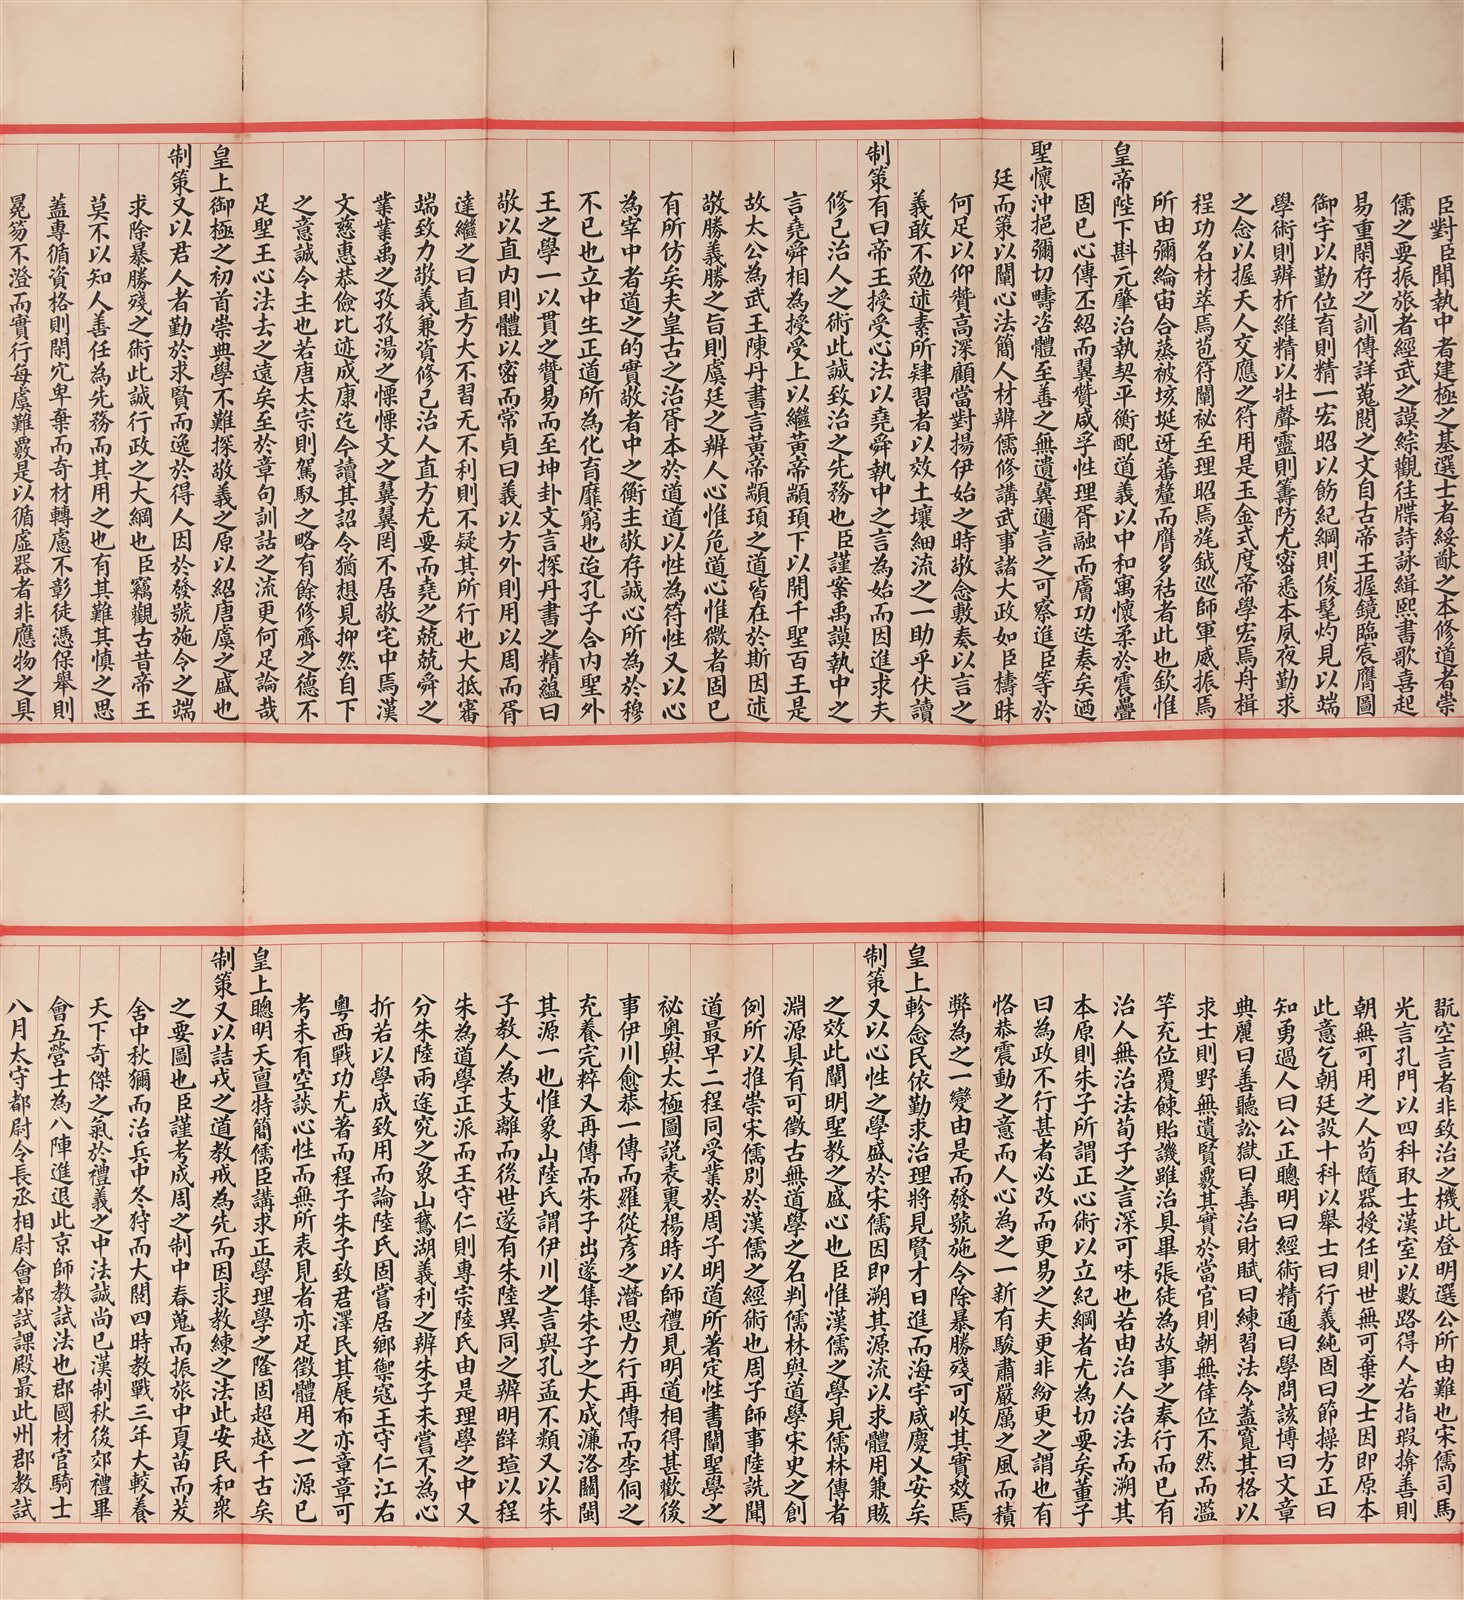 臣對臣聞執中者建極之基選士者綏猷之本修道者崇
儒之要振旅者經武之謨綜觀往牒詩詠緝熙書歌喜起
易重閑存之訓傳詳蒐閱之文自古帝王握鏡臨宸膺圖
御宇以勤位育則精一宏昭以飭紀綱則俊髦灼見以端
學術則辨析維精以壯聲靈則籌防尤密悉本夙夜勤求
之念以握天人交應之符用是玉金式度帝學宏焉丹楫
程功名材萃焉苞符闡祕至理昭焉旄鉞巡師軍威振焉
所由彌綸宙合蒸被垓埏迓蕃釐而膺多祜者此也欽惟
皇帝陛下斟元肇治執契平衡配道義以中和寓懷柔於震疊
固已心傳丕紹而翼贊咸孚性理胥融而膚功迭奏矣迺
聖懷沖挹彌切疇咨體至善之無遺冀邇言之可察進臣等於
廷而策以闡心法簡人材辨儒修講武事諸大政如臣檮昧
何足以仰贊高深顧當對揚伊始之時敬念敷奏以言之
義敢不勉述素所肄習者以效土壤細流之一助乎伏讀
制策有曰帝王授受心法以堯舜執中之言為始而因進求夫
修己治人之術此誠致治之先務也臣謹案禹謨執中之
言堯舜相為授受上以繼黃帝顓頊下以開千聖百王是
故太公為武王陳丹書言黃帝顓頊之道皆在於斯因述
敬勝義勝之旨則虞廷之辨人心惟危道心惟微者固已
有所仿矣夫皇古之治胥本於道道以性為符性又以心
為宰中者道之的實敬者中之衡主敬存誠心所為於穆
不已也立中生正道所為化育靡窮也迨孔子合內聖外
王之學一以貫之贊易而至坤卦文言探丹書之精蘊曰
敬以直內則體以密而常貞曰義以方外則用以周而胥
達繼之曰直方大不習无不利則不疑其所行也大抵審
端致力敬義兼資修己治人直方尤要而堯之兢兢舜之
業業禹之孜孜湯之慄慄文之翼翼罔不居敬宅中焉漢
文慈惠恭儉比迹成康迄今讀其詔令猶想見抑然自下
之意誠令主也若唐太宗則駕馭之略有餘修齊之德不
足聖王心法去之遠矣至於章句訓詁之流更何足論哉
皇上御極之初首崇典學不難探敬義之原以紹唐虞之盛也
制策又以君人者勤於求賢而逸於得人因於發號施令之端
求除暴勝殘之術此誠行政之大綱也臣竊觀古昔帝王
莫不以知人善任為先務而其用之也有其難其慎之思
蓋專循資格則閑宂卑棄而奇材轉慮不彰徒憑保舉則
冕笏不澄而實行每虞難覈是以循虛器者非應物之具
翫空言者非致治之機此登明選公所由難也宋儒司馬
光言孔門以四科取士漢室以數路得人若指瑕揜善則
朝無可用之人苟隨器授任則世無可棄之士因即原本
此意乞朝廷設十科以舉士曰行義純固曰節操方正曰
知勇過人曰公正聰明曰經術精通曰學問該博曰文章
典麗曰善聽訟獄曰善治財賦曰練習法令蓋寬其格以
求士則野無遺賢覈其實於當官則朝無倖位不然而濫
竽充位覆餗貽譏雖治具畢張徒為故事之奉行而已有
治人無治法荀子之言深可味也若由治人治法而溯其
本原則朱子所謂正心術以立紀綱者尤為切要矣董子
曰為政不行其者必改而更易之夫更非紛更之謂也有
恪恭震動之意而人心為之一新有駿肅嚴厲之風而積
弊為之一變由是而發號施令除暴勝殘可收其實效焉
皇上軫念民依勤求治理將見賢才日進而海宇咸慶乂安矣
制策又以心性之學盛於宋儒因即溯其源流以求體用兼賅
之效此闡明聖教之盛心也臣惟漢儒之學見儒林傳者
淵源具有可徵古無道學之名判儒林與道學宋史之創
例所以推崇宋儒別於漢儒之經術也周子師事陸詵聞
道最早二程同受業於周子明道所著定性書闡聖學之
祕奧與太極圖說表裏楊時以師禮見明道相得甚歡後
事伊川愈恭一傳而羅從彥之潛思力行再傳而李侗之
充養完粹又再傳而朱子出遂集朱子之大成濂洛關閩
其源一也惟象山陸氏謂伊川之言與孔孟不類又以朱
子教人為支離而後世遂有朱陸異同之辨明辥瑄以程
朱為道學正派而王守仁則專宗陸氏由是理學之中又
分朱陸兩途究之象山鵝湖義利之辨朱子未嘗不為心
折若以學成致用而論陸氏固嘗居鄉禦寇王守仁江右
粵西戰功尤著而程子朱子致君澤民其展布亦章章可
考未有空談心性而無所表見者亦足徵體用之一源已
皇上聰明天亶特簡儒臣講求正學理學之隆固超越千古矣
制策又以詰戎之道教戒為先而因求教練之法此安民和衆
之要圖也臣謹考成周之制中春蒐而振旅中夏苗而茇
舍中秋獮而治兵中冬狩而大閱四時教戰三年大較養
天下奇傑之氣於禮義之中法誠尚已漢制秋後郊禮畢
會五營士為八陣進退此京師教試法也郡國材官騎士
八月太守都尉令長丞相尉會都試課殿最此州郡教試